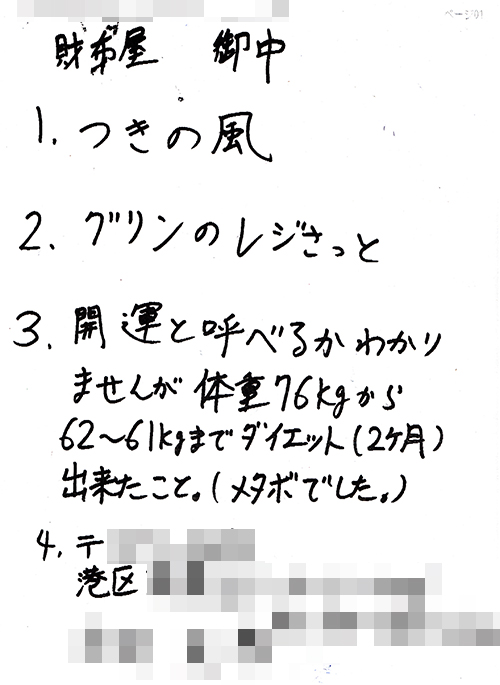 ページ01
財布屋 御中
1. つきの風
2. グリンのレジさっと
3. 開運と呼べるかわかり
ませんが 体重76kgから
62〜61kgまでダイエット(2ケ月)
出来たこと。(メタボでした。)
4. 〒
港区